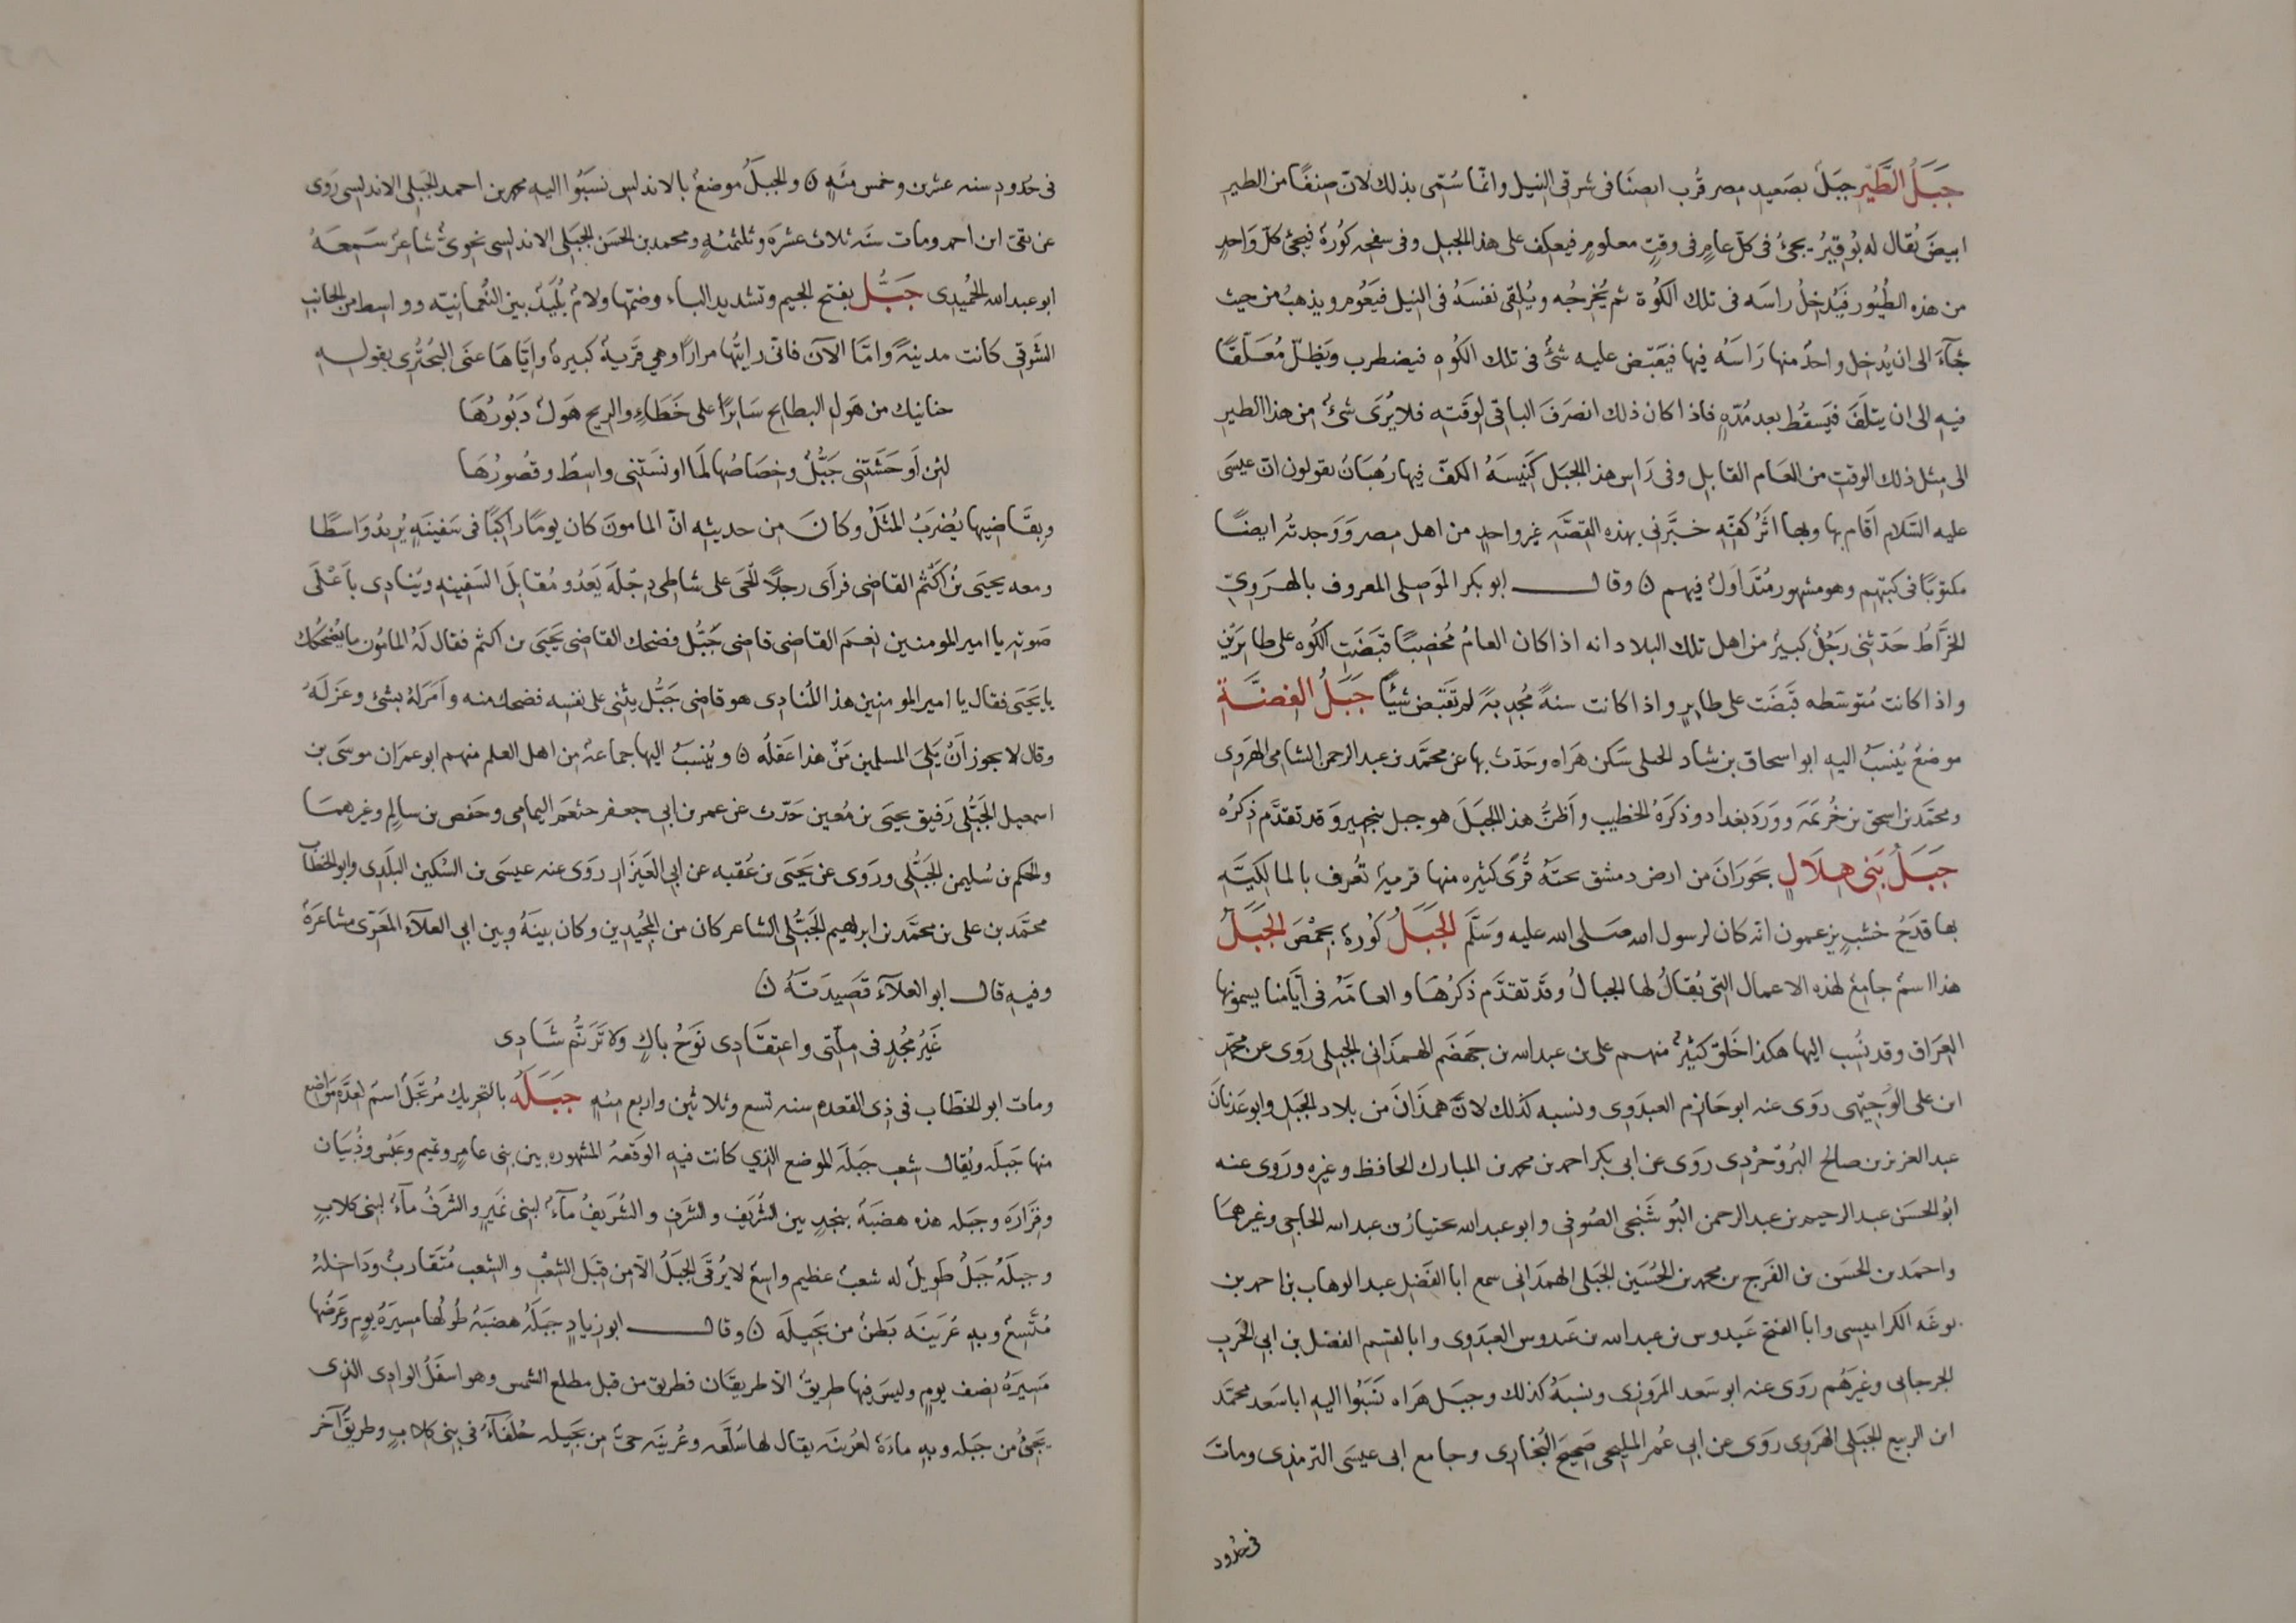 جَبَلُ الطَّيْرِ جبَلٌ بصَعيد مصر قُرب انصنَا فى شرقى النيل وانمّا سُمّى بذلك لانّ صِنفًا من الطير
ابيضَ يُقال له بُوقيرُ يجىُٔ فى كلّ عامٍ فى وقتٍ معلومٍ فيعكف على هذا الجبل وفى سفحه كُوّةٌ فيجئ كلّ واحدٍ
من هذه الطُيُور فيُدخِلُ راسَه فى تلك الكُوّة ثم يُخرجُه ويُلقى نفسَهُ فى النيل فيَعُوم ويذهبُ من حيث
جآءَ الى ان يُدخل واحدٌ منها رَاسَهُ فيها فيَقبَض عليه شىٌٔ فى تلك الكُوه فيضطرب ويَظلّ مُعَلّقًا
فيه الى ان يتلَفَ فيَسقُط بعد مُدّهٍ فاذا كان ذلك انصرَفَ الباقى لوقتِه فلا يُرَى شئٌ من هذا الطير
الى مِثل ذلك الوقت من العَام القابِل وفى رَاس هذا الجبَل كَنِيسَهُ الكفّ فيها رُهبَانٌ يقولون انّ عيسَى
عليه السَّلام اَقام بها وبها اثَرُ كفّهِ خبَّرنى بهذه القصّه غير واحدٍ من اهل مصر وَوَجدتُه ايضًا
مكتوبًا فى كتبهم وهو مشهور مُتَداوَلٌ فيهم ۞ وقال ابو بكر المَوصِلى المعروف بالهرَوىّ
الخرَّاطُ حَدّثنى رَجُلٌ كبيرٌ من اهل تلك البلاد انه اذا كان العامُ مُخصِبًا قبَضَت الكُوه على طايرَين
واذا كانت مُتوسّطه قَبَضَت على طايرٍ واذا كانت سنهً مُجدِبهً لم تَقبض شيئًا جَبَلُ الفضَّةِ
موضعٌ يُنسَبُ اليه ابو اسحاق بن شاد الجبلى سَكن هَراه وحَدّث بها عن محمَّد بن عبد الرحمن الشامى الهرَوى
ومحمّد بن اسحق بن خُزيمَه ووَرَدَ بغداد وذكَرَهُ الخطيب واَظنُّ هذا الجبَلَ هو جبل بنجهير وقد تقدَّم ذِكرُه
جَبَلُ بَنِى هِلَالٍ بحَورَانَ من ارض دمشق تحتَهُ قُرًى كثيره منها قريهٌ تُعرف بالمالكيَّه
بها قدَحُ خشبٍ يزعمون انه كان لرسول الله صَلى الله عليه وسَلَّم الجَبَلُ كُورةٌ بحِمْصَ الجَبَلُ
هذا اسمٌ جامعٌ لهذه الاعمال التى يُقالُ لها الجبالُ وقد تقدَّم ذكرُهَا والعامّهُ فى ايّامنا يسمونها
العِرَاق وقد نُسِب اليها هكذا خَلقٌ كثيرٌ منهم على بن عبد الله بن جَهضَم الهمذَانى الجبلى روَى عن محمّد
ابن على الوَجيهى روَى عنه ابو حَازِم العبدَوى ونسبه كذلك لانّ همذَانَ من بلاد الجبَل وابو عَدنَانَ
عبد العزيز بن صالح البُروجِرْدى روَى عن ابى بكر احمد بن محمد بن المبارك الحافظ وغيره وروى عنه
ابُو الحسَن عبد الرحيم بن عبد الرحمن البُوشَنجى الصُوفى وابو عبد الله بختيار بن عبد الله الحاجبى وغيرهمَا
واحمَد بن الحسَن بن الفَرج بن محمد بن الحُسَين الجبَلى الهمذَانى سمع ابا الفضل عبد الوهاب بن احمد بن
بوغَه الكرابيسى وابا الفتح عَبدوس بن عبد الله بن عَبدوس العبدَوى وابا القسم الفضل بن ابى الحَرب
الجرجانى وغيرَهُم روَى عنه ابو سَعد المروَزى ونسَبهُ كذلك وجبَل هَراه نَسَبُوا اليه ابا سَعد محمّد
ابن الربيع الجبَلى الهَروى روَى عن ابى عُمر المليحى صَحيحَ البُخارى وجامع ابى عيسَى الترمذى وماتَ
فى حدود
فى حُدُود سنه عشرين وخمس مئهٍ ۞ والجبَلُ موضعٌ بالاندلس نسَبُوا اليه محمد بن احمد الجبَلى الاندلسى رَوى
عن بقىّ ابن احمد ومات سنَه ثلاث عشرَه وثلثمئهٍ ومحمد بن الحسَن الجبَلى الاندلسى نحوىٌّ شاعرٌ سَمِعَهُ
ابو عبد الله الحُميدى جَبُّلُ بفتح الجيم وتشديد الباء وضمّها ولامٌ بُلَيدٌ بين النُعمانيّه وواسط من الجانب
الشَرقى كانت مدينهً وامَّا الآنَ فانّى رايتُها مرارًا وهي قَريهٌ كبيرهٌ وايّاها عنَى البُحتُرى بقوله
حنانيك من هَول البطايح سَايرًا على خَطَاءٍ والريح هَولٌ دَبُورُهَا
لئِن اَوحَشَتنِى جَبُّلٌ وخِصَاصُها لمَا اونَسَتنِى واسِطٌ وقُصورُهَا
وبقَاضِيها يُضرَبُ المَثَلُ وكانَ من حديثِه انّ المامونَ كان يومًا رَاكبًا فى سَفينَهٍ يُريدُ وَاسطًا
ومعه يحيَى بنُ اَكثَم القاضى فراَى رجلاً لّحَى على شاطى دِجْلَه يَعدُو مُقابِلَ السَفِينه ويُنادِى باَعْلَى
صَوتِه يا امير المومنين نعمَ القاضى قاضى جَبُّل فضحك القاضى يَحيَى بن اكثم فقال لَهُ المامُون ما يُضحُكك
يا يَحيَى فقال يا امير المومنين هذا المُنادِى هو قاضى جَبُّل يثنى على نفسِه فضحك منه واَمَرَ لهُ بشئ وعَزَلَهُ
وقال لا يجوز اَنْ يَلىَ المسلمين مَنْ هذا عَقلُه ۞ ويُنسَبُ اليها جماعهٌ من اهل العلم منهم ابو عمرَان موسَى بن
اسمعيل الجَبُّلى رَفيق يحيَى بن مُعين حَدّث عن عمر بن ابى جعفر خثعَم اليمامى وحَفص بن سالِم وغيرهمَا
والحكم بن سُليمن الجَبُّلى ورَوى عن يَحيَى بن عُقبه عن ابى العَيزار روَى عنه عيسَى بن السُكين البلَدى وابو الخطاب
محمّد بن على بن محمَّد بن ابرهيم الجَبُّلى الشاعر كان من المُجيدين وكان بينَهُ وبين ابى العلآء المعَرّى مشاعَرهٌ
وفيه قال ابو العلآءَ قَصِيدَتَهُ ۞
غَيْرُ مُجْدٍ فى مِلّتى واعتِقَادِى نَوْحُ باكٍ وَلا تَرَنُّم شَادِى
ومات ابو الخطّاب فى ذِى القعده سنه تسع وثلاثين واربع مئهٍ جَبَلَهُ بالتحريك مُرتَجَلٌ اسم لعدَّه مَوَاضِع
منها جَبَلَه ويُقال شِعب جبَلَه الموضع الذي كانت فيه الوَقعَهُ المشهوره بين بنى عامرٍ وتميم وعَبْس وذُبيَان
وفزَارَه وجبَله هذه هضبَهٌ بنجدٍ بين الشُرَيف والشرَف والشُرَيفُ مآءٌ لبنى نُمَيرٍ والشرَفُ مآءٌ لبنى كلابٍ
وجبلَهُ جبَلٌ طويلٌ له شعبٌ عظيم واسعٌ لا يُرقَى الجبَلُ الّا من قبَل الشِعْبِ والشعب مُتَقاربٌ ودَاخلهُ
مُتَّسِعٌ وبه عُرَينَه بَطنٌ من بَجِيلَه ۞ وقال ابو زيادٍ جبَلَهُ هضبَهٌ طُولُها مسيرَهُ يومٍ وعَرضُها
مَسيرَهُ نصف يومٍ وليسَ فيها طريقٌ الّا طريقَان فطريق من قبل مطلع الشمس وهو اسفَلُ الوادى الذى
يجىُٔ من جبَله وبهِ ماءَهٌ لعُرَينَه يقال لها سَلعَه وعُرَينَه حىٌّ من بَجيله حُلفَآءُ فى بنى كلابٍ وطريقٌ آخر